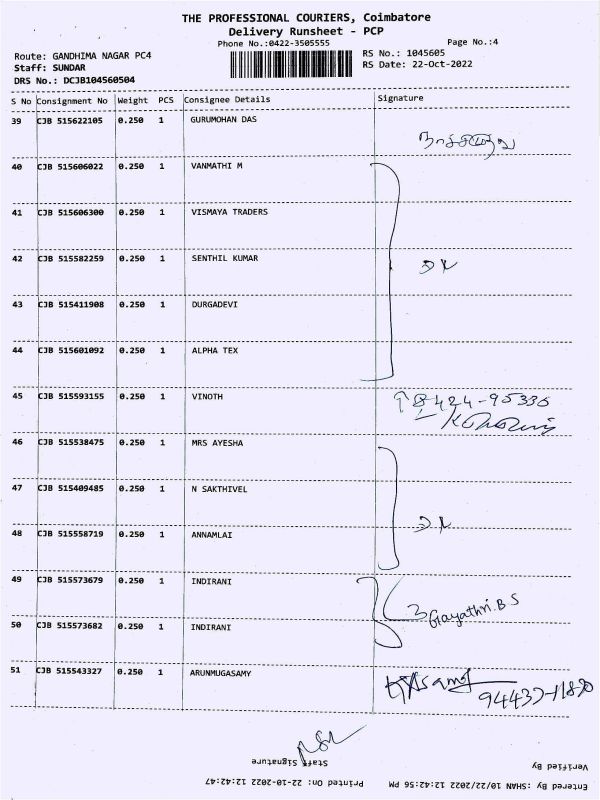 THE PROFESSIONAL COURIERS, Coimbatore
Delivery Runsheet - PCP
Phone No.:0422-3505555
Page No.:4
Route: GANDHIMA NAGAR PC4
RS No.: 1045605
Staff: SUNDAR
RS Date: 22-Oct-2022
DRS No.: DCJB104560504
S No Consignment No Weight PCS Consignee Details Signature
39 CJB 515622105 0.250 1 GURUMOHAN DAS
40 CJB 515606022 0.250 1 VANMATHI M
41 CJB 515606300 0.250 1 VISMAYA TRADERS
42 CJB 515582259 0.250 1 SENTHIL KUMAR
43 CJB 515411908 0.250 1 DURGADEVI
44 CJB 515601092 0.250 1 ALPHA TEX
45 CJB 515593155 0.250 1 VINOTH
46 CJB 515538475 0.250 1 MRS AYESHA
47 CJB 515409485 0.250 1 N SAKTHIVEL
48 CJB 515558719 0.250 1 ANNAMLAI
49 CJB 515573679 0.250 1 INDIRANI
Gayathri.B S
50 CJB 515573682 0.250 1 INDIRANI
51 CJB 515543327 0.250 1 ARUNMUGASAMY
Staff Signature
Verified By
Printed On: 22-10-2022 12:42:47
Entered By :SHAN: 10/22/2022 12:42:56 PM